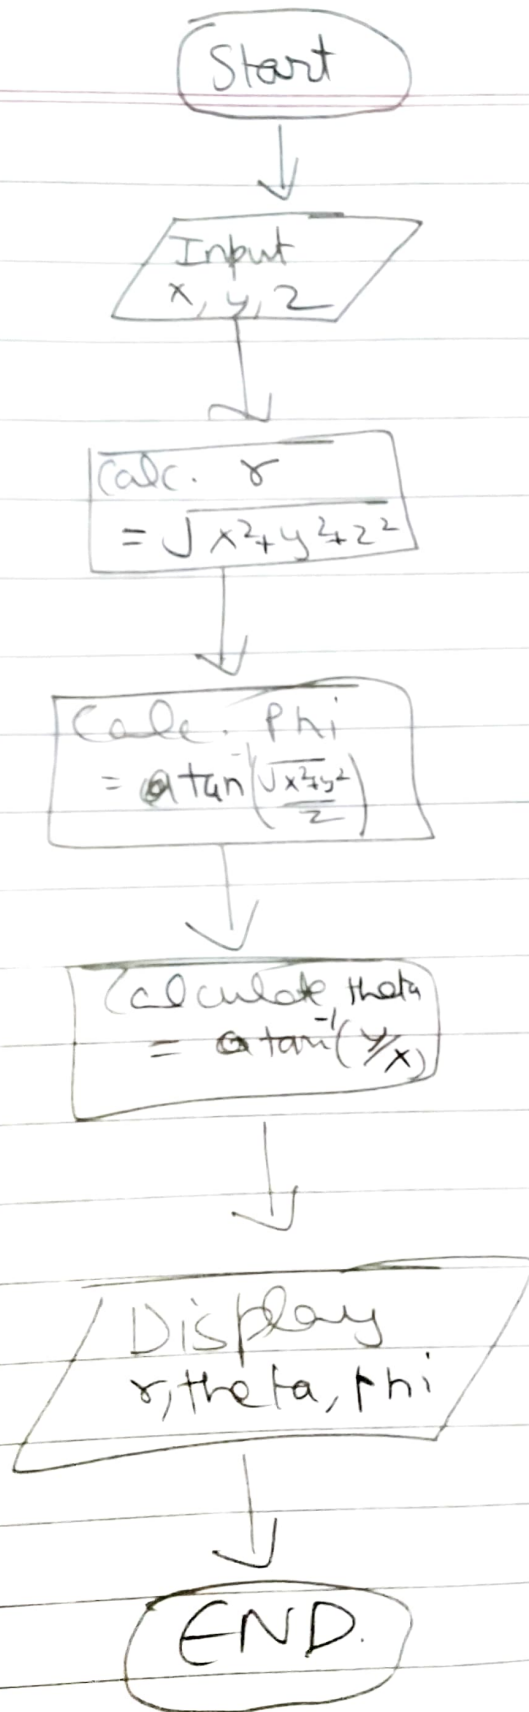 Start
Input
x, y, z
Calc. r
= √x²+y²+z²
Calc. Phi
= atan⁻¹(√x²+y²/z)
Calculate theta
= atan⁻¹(y/x)
Display
r, theta, phi
END.